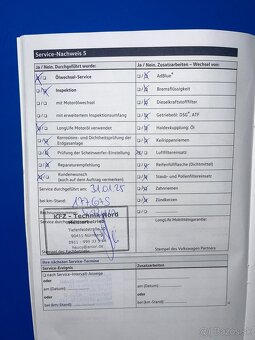 Service-Nachweis 5
Ja / Nein. Durchgeführt wurde:
Ölwechsel-Service
Inspektion
mit Motorölwechsel
mit erweitertem Inspektionsumfang
LongLife Motoröl verwendet
Korrosions- und Dichtheitsprüfung der
Erdgasanlage
Prüfung der Scheinwerfer-Einstellung
Reparaturempfehlung
Kundenwunsch
(auch auf dem Auftrag vermerken)
Service durchgeführt am:
bei km-Stand:
KFZ - Technik Nord
Meisterbetrieb
90411 Nürnberg
Ja / Nein. Zusatzarbeiten – Wechsel von:
AdBlue®
Bremsflüssigkeit
Dieselkraftstofffilter
Getriebeöl: DSG®, ATF
Haldexkupplung: Öl
Keilrippenriemen
Luftfiltereinsatz
Reifenfüllflasche (Dichtmittel)
Staub- und Pollenfiltereinsatz
Zahnriemen
Zündkerzen
LongLife Mobilitätsgarantie:
Stempel des Volkswagen Partners
Ihre nächsten Service-Termine
Service-Ereignis
Zusatzarbeiten
nach Service-Intervall-Anzeige
oder
am (Datum)
oder
bei (km-Stand)
am (Datum)
oder
bei (km-Stand)